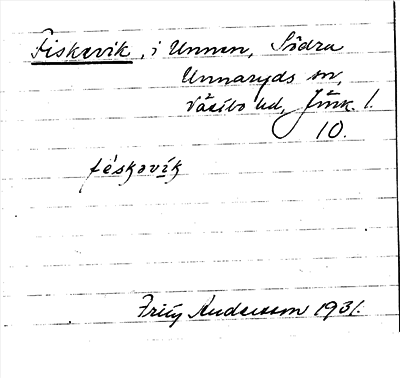 Fiskevik, i Unnen, Södra
Unnaryds sn,
Västbo hd, Jönk. l.
10.
feskəvik
Fritz Andersson 1931.